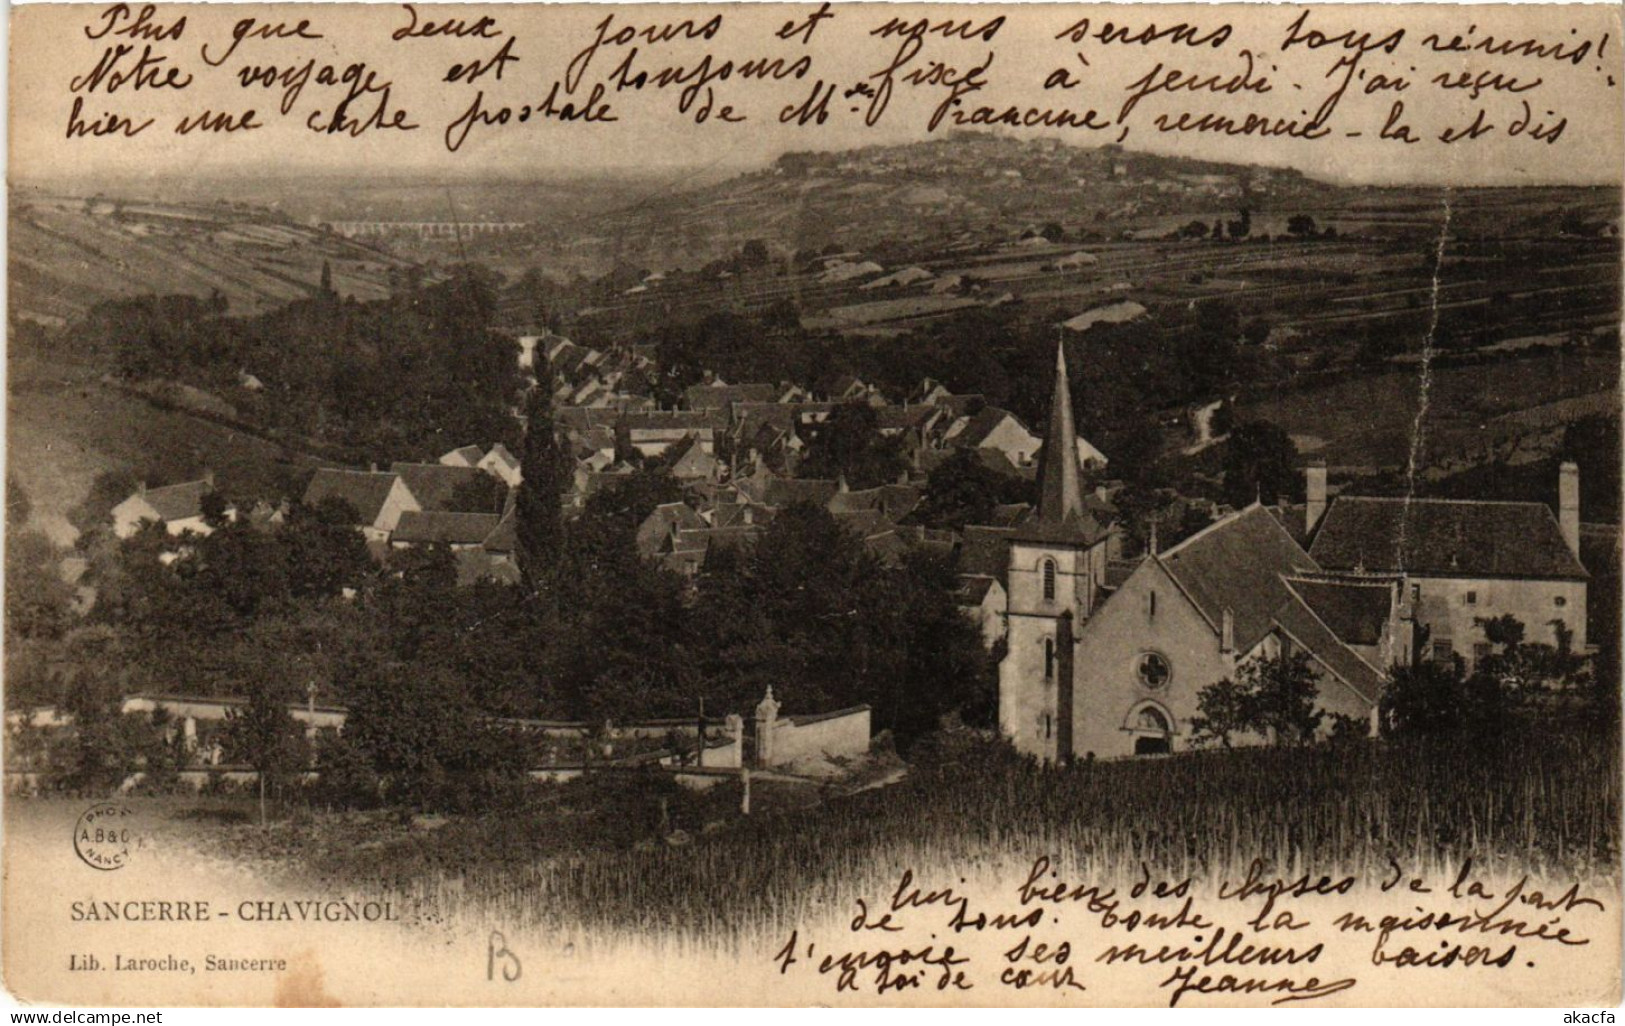 Plus que deux jours et nous serons tous réunis!
Notre voyage est toujours fixé à jeudi. J'ai reçu
hier une carte postale de Mme Francine, remercie-la et dis
lui bien des choses de la part
de tous. Toute la maisonnée
t'envoie ses meilleurs baisers.
A toi de cœur Jeanne
PHOT
A.B&C
NANCY
SANCERRE - CHAVIGNOL
Lib. Laroche, Sancerre
B
akacfa
www.delcampe.net